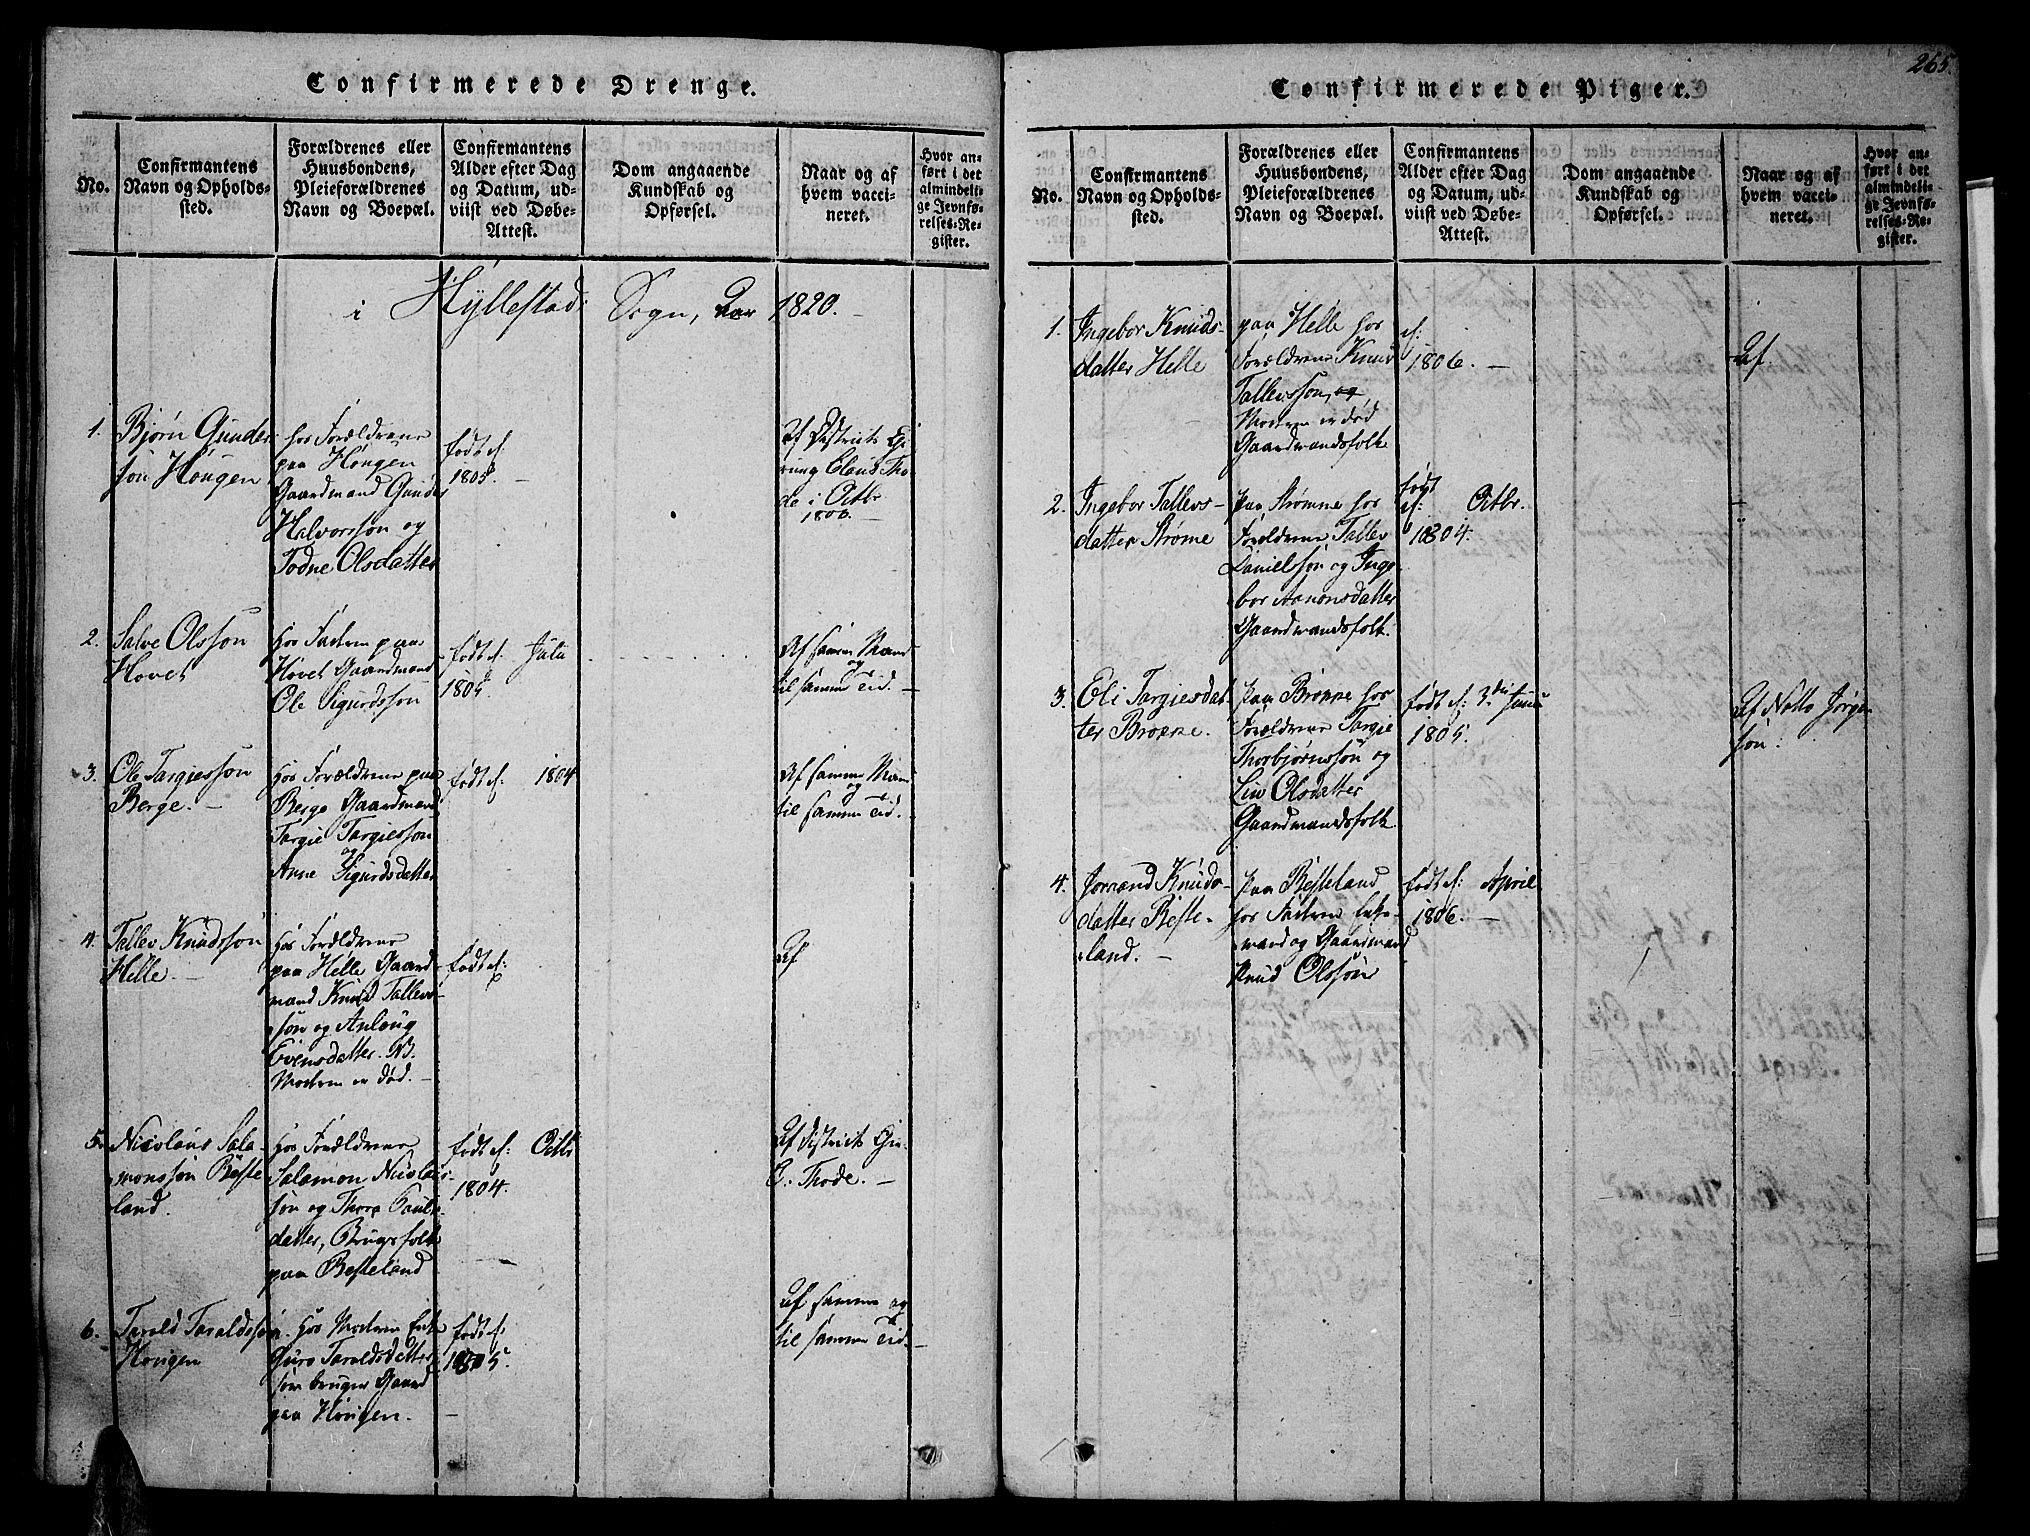 Confirmerede Drenge.
No.
Confirmantens
Navn og Opholds-
sted.
Forældrenes eller
Huusbondens,
Pleieforældrenes
Navn og Boepæl.
Confirmantens
Alder efter Dag
og Datum, ud-
viist ved Døbe-
Attest.
Dom angaaende
Kundskab og
Opførsel.
Naar og af
hvem vacci-
neret.
Hvor an-
ført i det
almindeli-
ge Jevnfø-
relses-Re-
gister.
i Hyllestad Sogn, Aar 1820.
1.
Bjørn Gunder
søn Høugen
hos Forældrene
paa Høugen
Gaardmand Gunder
Halvorssøn og
Todne Olsdatter
født d:
1805. -
Af District
Claus Tho-
de i Octbr
1806. -
2.
Salve Olssøn
Hovet
hos Faderen paa
Hovet Gaardmand
Ole Sigurdssøn
født d: Julii
1805.
Af samme Mand
og
til samme Tid. -
3.
Ole Targiessøn
Berge. -
hos Forældrene paa
Berge Gaardmand
Targie Targiessøn
og
Anne Sigurdsdatter
født d: 1804
Af samme Mand
og
til samme Tid.
4.
Tallev Knudssøn
Helle. -
hos Forældrene
paa Helle Gaard-
mand Knud Tallevs-
søn og Anlaug
Evensdatter. NB.
Moderen er død. -
født d:
Af
5.
Nicolaus Sala-
monssøn Beste
land.
hos Forældrene
Salamon Nicolaus-
søn og Thora Pauls-
datter, Brugsfolk
paa Besteland
født d: Octbr
1804.
Af District
C. Thode. -
6.
Tarald Taraldssøn
Hougen
hos Moderen Enke
Guro Taraldsdatter
som bruger Gaard
paa Hougen.
født d:
1805.
Af samme og
til samme Tid. -
Confirmerede Piger.
265.
No.
Confirmantens
Navn og Opholds-
sted.
Forældrenes eller
Huusbondens,
Pleieforældrenes
Navn og Boepæl.
Confirmantens
Alder efter Dag
og Datum, ud-
viist ved Døbe-
Attest.
Dom angaaende
Kundskab og
Opførsel.
Naar og af
hvem vacci-
neret.
Hvor an-
ført i det
almindelig-
ge Jevnfø-
relses-Re-
gister.
1.
Ingebor Knuds-
datter Helle
paa Helle hos
Forældrene Knud
Tallevssøn, og
Modren er død
Gaardmandsfolk
d:
1806. -
Af
2.
Ingebor Tallevs-
datter Strøme
paa Strømme hos
Forældrene Tallev
Danielssøn og Inge-
bor Aanonsdatter
Gaardmandsfolk.
født
d: Octbr.
1804.
3.
Eli Targiesdat-
ter Brokke.
paa Brokke hos
Forældrene Targie
Thorbjørnssøn og
Liv Olsdatter
Gaardmandsfolk
født d: 3die Junii
1805.
Af Jørgen-
søn.
4.
Jorand Knuds-
datter Beste-
land. -
paa Besteland
hos Faderen Enke-
mand og Gaardmand
Knud Olssøn
født d: April
1806. -